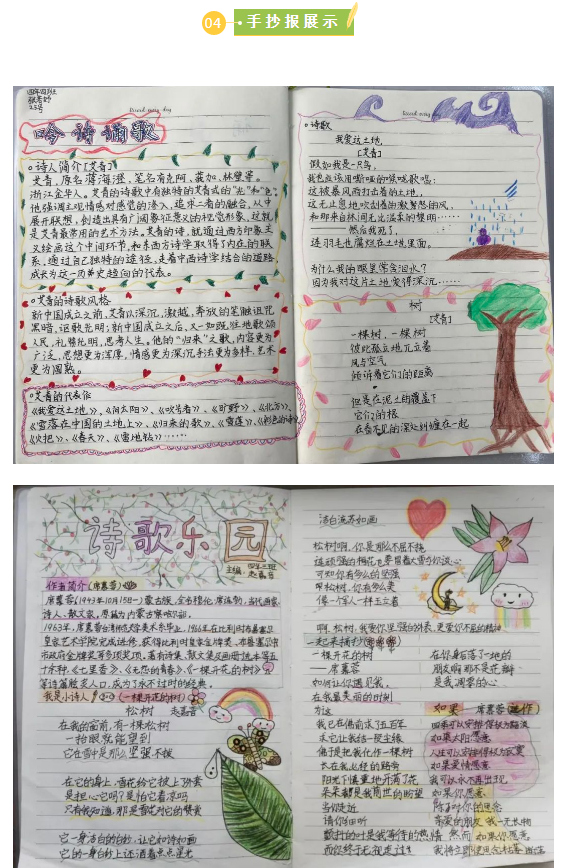 04
手抄报展示
四年四班
吟诗诵歌
诗人简介[艾青]
艾青,原名蒋海澄,笔名有莪加、林壁等。
浙江金华人。艾青的诗歌中有独特的艾青式的“光”和“色”。
他强调主观情感对感觉的渗入,追求二者的融合,从中
展开联想,创造出具有广阔象征意义的视觉形象。这就
是艾青最常用的艺术方法。艾青的诗,既通过西方印象主
义绘画这个中间环节,和东西方诗学取得了内在的联
系,通过自己独特的途径,走着中西诗学结合的道路,
成长为这一历史趋向的代表。
艾青的诗歌风格
新中国成立之前,艾青以深沉,激越,奔放的笔触诅咒
黑暗,讴歌光明;新中国成立之后,又一如既往地歌颂
人民,礼赞光明,思考人生。他的“归来”之歌,内容更为
广泛,思想更为浑厚,情感更为深沉,手法更为多样,艺术
更为圆熟。
艾青的代表作
《我爱这土地》、《向太阳》、《吹号者》、《旷野》、《北方》、
《雪落在中国的土地上》、《归来的歌》、《雪莲》、《彩色的诗》
《火把》、《春天》、《雪地钻》……
诗歌
我爱这土地
[艾青]
假如我是一只鸟,
我也应该用嘶哑的喉咙歌唱:
这被暴风雨打击着的土地,
这无止息地吹刮着的激怒的风,
和那来自林间无比温柔的黎明……
——然后我死了,
连羽毛也腐烂在土地里面。
为什么我的眼里常含泪水?
因为我对这片土地爱得深沉……
树
[艾青]
一棵树,一棵树
彼此孤立地兀立着
风与空气
倾诉着它们的距离
但是在泥土的覆盖下
它们的根
在看不见的深处纠缠在一起
诗歌乐园
作者简介(席慕蓉)
席慕蓉(1943年10月15日—)蒙古族,全名穆伦·席连勃,当代画家、
诗人、散文家,原籍内蒙古
1963年,席慕蓉台湾师范大学美术系毕业,1966年在比利时布鲁塞尔
皇家艺术学院完成进修,获得比利时皇家金牌奖、布鲁塞尔市
市政府金牌奖等多项奖项。著有诗集、散文集及画册等
十余种,《七里香》、《无怨的青春》、《一棵开花的树》
等诗篇脍炙人口,成为了永不过时的经典。
我是小诗人
(一棵开花的树)
松树
在我的窗前,有一棵松树
一抬眼就能望到
它在雪中是那么坚强不拔
在它的身上,雪花给它披上外套
是担心它吗?是怕它着凉吗
只有我知道,那是雪花对它的赞赏
它一身洁白的白纱,让它如诗如画
松树啊,你是那么不屈不挠
可知你有多么的坚强
啊松树,你有多么美
像一个军人一样立着
一起来摘抄
一棵开花的树
——席慕蓉
如何让你遇见我,
在我最美丽的时刻
为这
我已在佛前求了五百年
求它让我们结一段尘缘
佛于是把我化作一棵树
长在你必经的路旁
阳光下慎重地开满了花
朵朵都是我前世的盼望
当你走近
请你细听
颤抖的叶是我等待的热情
而你终于无视走过
在你身后落了一地的
朋友啊那不是花瓣
是我凋零的心
如果
席慕蓉
如果太阳愿意
如果爱情愿意
我可以永不再出现
如果你愿意
除了对你的思念
亲爱的朋友 我一无长物
然而 如果你愿意